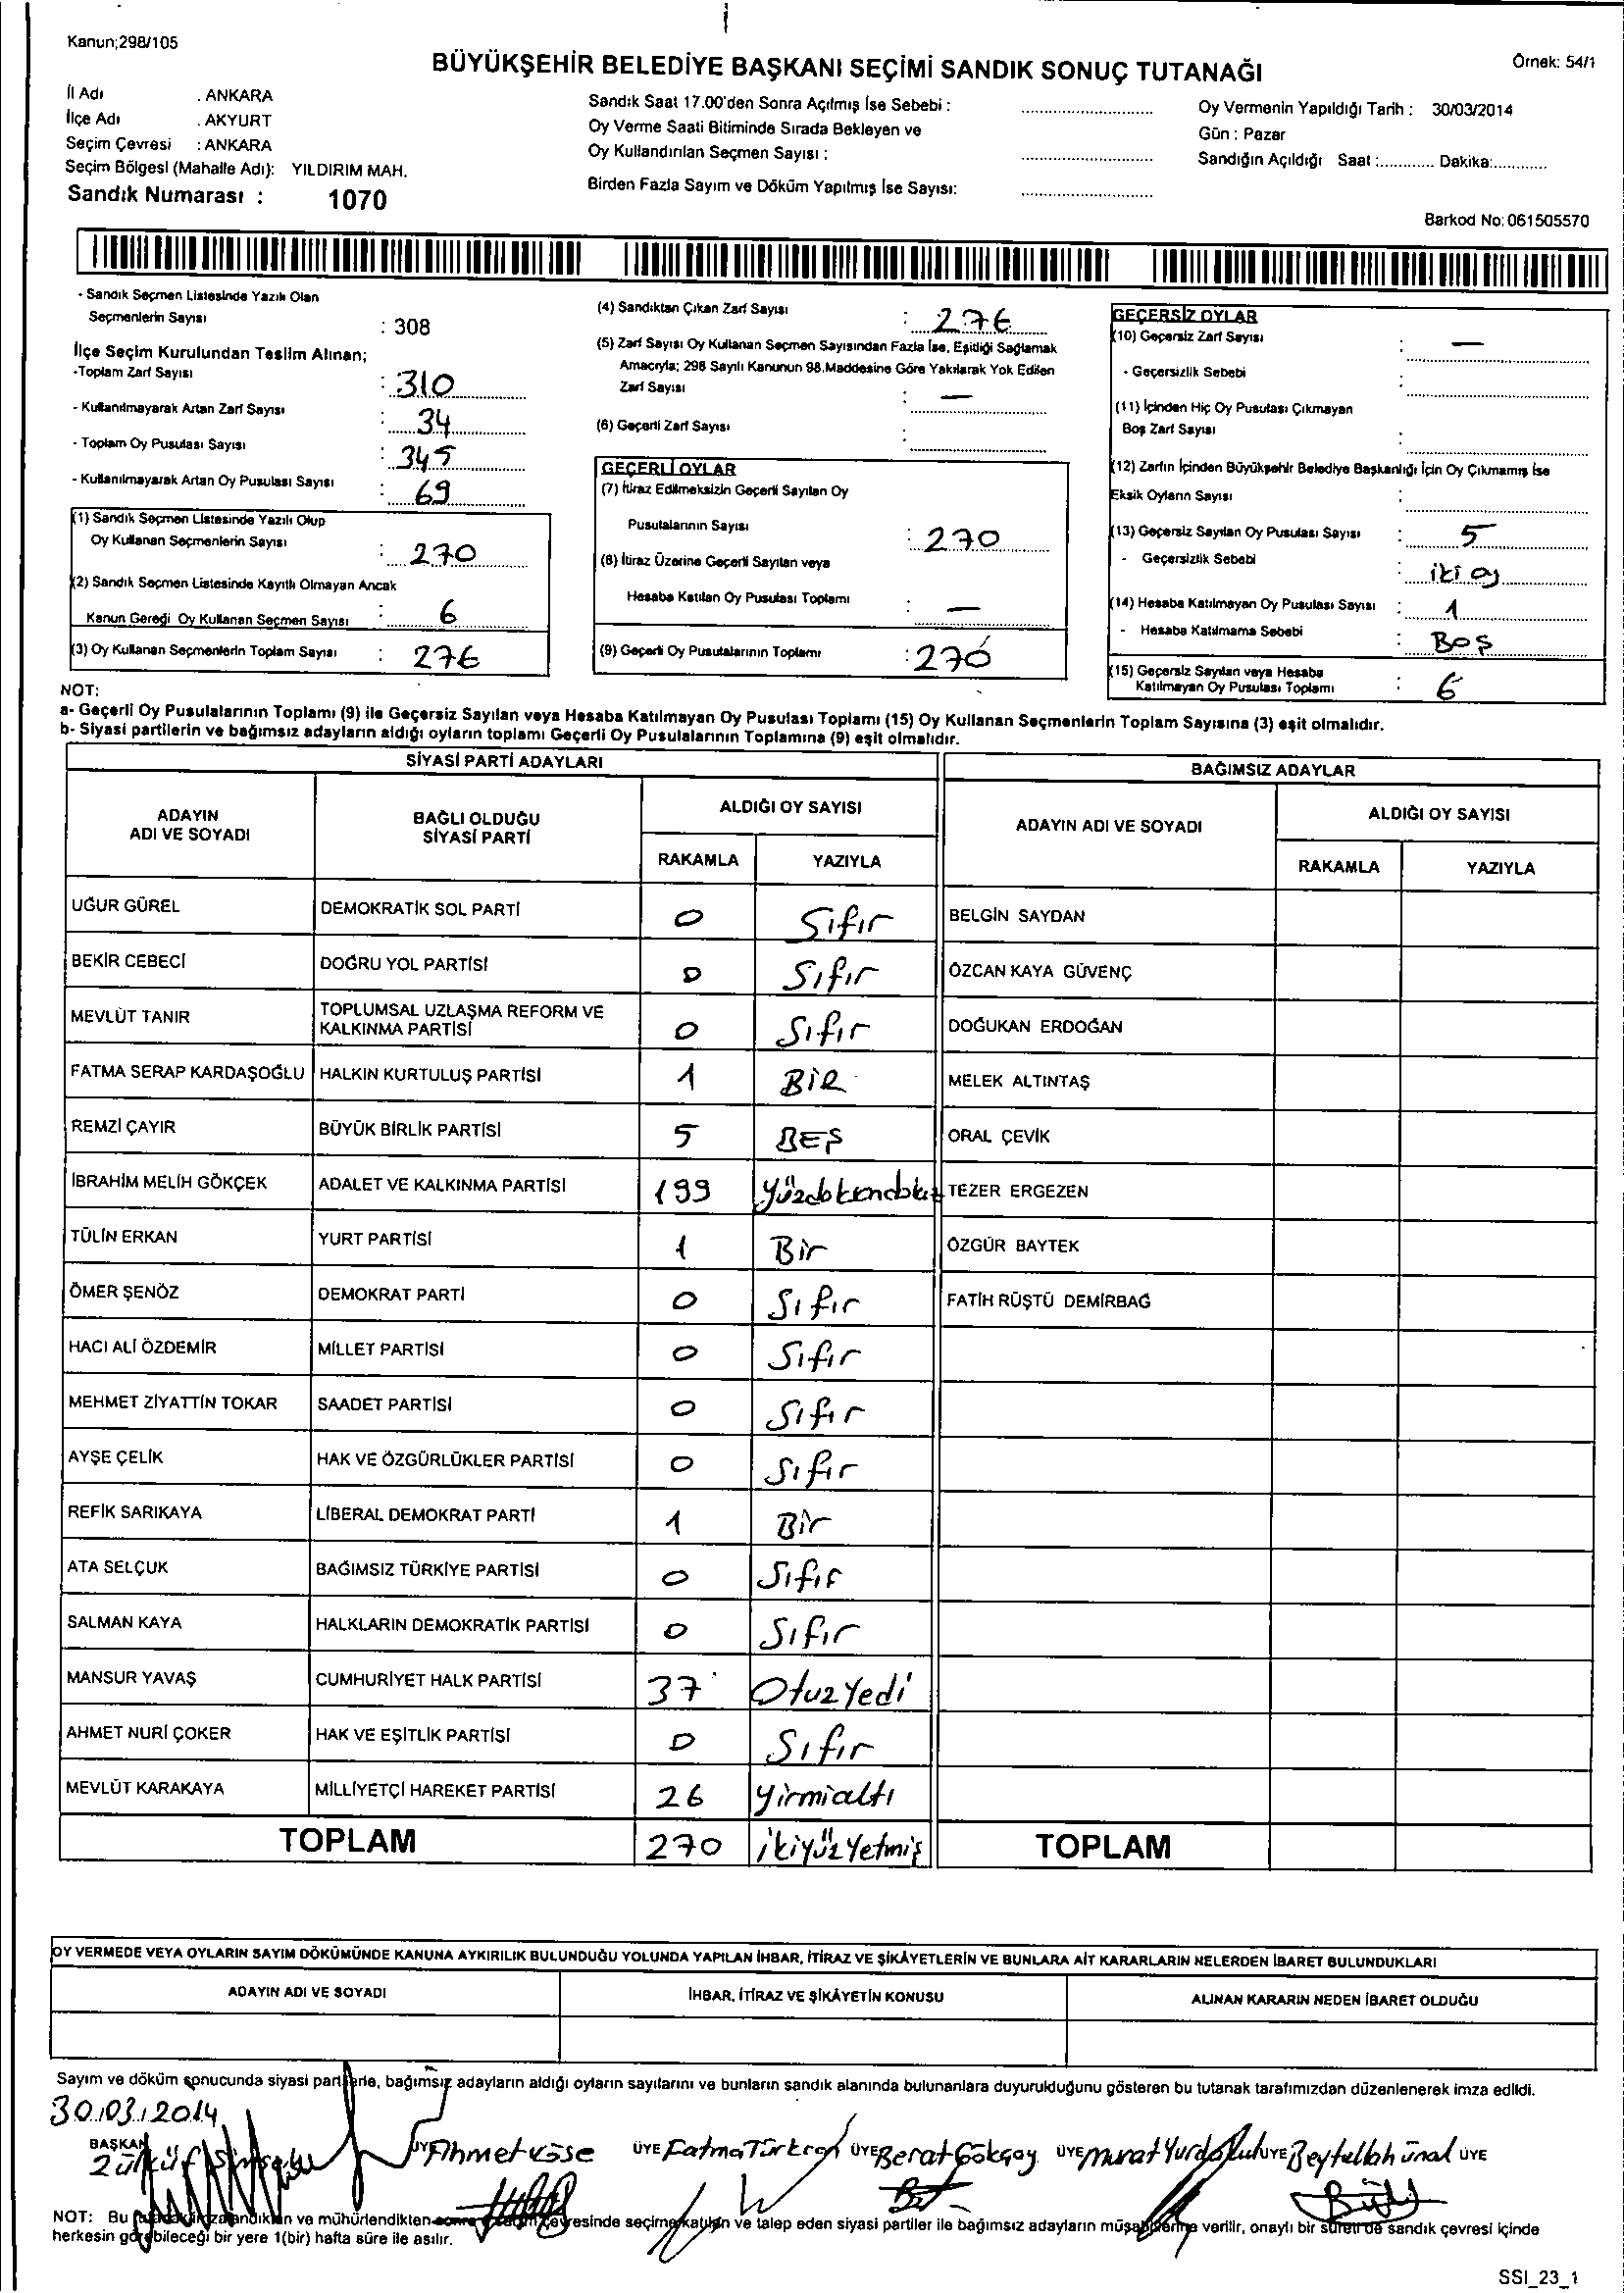 Kanun;298/105
BÜYÜKŞEHİR BELEDİYE BAŞKANI SEÇİMİ SANDIK SONUÇ TUTANAĞI
Örnek: 54/1
İl Adı : ANKARA
İlçe Adı : AKYURT
Seçim Çevresi : ANKARA
Seçim Bölgesi (Mahalle Adı): YILDIRIM MAH.
Sandık Numarası : 1070
Sandık Saat 17.00'den Sonra Açılmış İse Sebebi :
Oy Verme Saati Bitiminde Sırada Bekleyen ve
Oy Kullandırılan Seçmen Sayısı :
Birden Fazla Sayım ve Döküm Yapılmış İse Sayısı:
Oy Vermenin Yapıldığı Tarih : 30/03/2014
Gün : Pazar
Sandığın Açıldığı Saat :............ Dakika:............
Barkod No: 061505570
- Sandık Seçmen Listesinde Yazılı Olan
Seçmenlerin Sayısı : 308
İlçe Seçim Kurulundan Teslim Alınan;
-Toplam Zarf Sayısı : 310
- Kullanılmayarak Artan Zarf Sayısı : 34
- Toplam Oy Pusulası Sayısı : 345
- Kullanılmayarak Artan Oy Pusulası Sayısı : 69
(1) Sandık Seçmen Listesinde Yazılı Olup
Oy Kullanan Seçmenlerin Sayısı : 270
(2) Sandık Seçmen Listesinde Kayıtlı Olmayan Ancak
Kanun Gereği Oy Kullanan Seçmen Sayısı : 6
(3) Oy Kullanan Seçmenlerin Toplam Sayısı : 276
(4) Sandıktan Çıkan Zarf Sayısı : 276
(5) Zarf Sayısı Oy Kullanan Seçmen Sayısından Fazla İse, Eşitliği Sağlamak
Amacıyla; 298 Sayılı Kanunun 98.Maddesine Göre Yakılarak Yok Edilen
Zarf Sayısı : —
(6) Geçerli Zarf Sayısı :
GEÇERLİ OYLAR
(7) İtiraz Edilmeksizin Geçerli Sayılan Oy
Pusulalarının Sayısı : 270
(8) İtiraz Üzerine Geçerli Sayılan veya
Hesaba Katılan Oy Pusulası Toplamı : —
(9) Geçerli Oy Pusulalarının Toplamı : 270
GEÇERSİZ OYLAR
(10) Geçersiz Zarf Sayısı : —
- Geçersizlik Sebebi :
(11) İçinden Hiç Oy Pusulası Çıkmayan
Boş Zarf Sayısı :
(12) Zarfın İçinden Büyükşehir Belediye Başkanlığı İçin Oy Çıkmamış İse
Eksik Oyların Sayısı :
(13) Geçersiz Sayılan Oy Pusulası Sayısı : 5
- Geçersizlik Sebebi : iki oy
(14) Hesaba Katılmayan Oy Pusulası Sayısı : 1
- Hesaba Katılmama Sebebi : BOŞ
(15) Geçersiz Sayılan veya Hesaba
Katılmayan Oy Pusulası Toplamı : 6
NOT:
a- Geçerli Oy Pusulalarının Toplamı (9) ile Geçersiz Sayılan veya Hesaba Katılmayan Oy Pusulası Toplamı (15) Oy Kullanan Seçmenlerin Toplam Sayısına (3) eşit olmalıdır.
b- Siyasi partilerin ve bağımsız adayların aldığı oyların toplamı Geçerli Oy Pusulalarının Toplamına (9) eşit olmalıdır.
SİYASİ PARTİ ADAYLARI
BAĞIMSIZ ADAYLAR
ADAYIN ADI VE SOYADI
BAĞLI OLDUĞU SİYASİ PARTİ
ALDIĞI OY SAYISI
RAKAMLA YAZIYLA
ADAYIN ADI VE SOYADI
ALDIĞI OY SAYISI
RAKAMLA YAZIYLA
UĞUR GÜREL DEMOKRATİK SOL PARTİ 0 Sıfır BELGİN SAYDAN
BEKİR CEBECİ DOĞRU YOL PARTİSİ 0 Sıfır ÖZCAN KAYA GÜVENÇ
MEVLÜT TANIR TOPLUMSAL UZLAŞMA REFORM VE KALKINMA PARTİSİ 0 Sıfır DOĞUKAN ERDOĞAN
FATMA SERAP KARDAŞOĞLU HALKIN KURTULUŞ PARTİSİ 1 BİR MELEK ALTINTAŞ
REMZİ ÇAYIR BÜYÜK BİRLİK PARTİSİ 5 BEŞ ORAL ÇEVİK
İBRAHİM MELİH GÖKÇEK ADALET VE KALKINMA PARTİSİ 199 yüzdoksandokuz TEZER ERGEZEN
TÜLİN ERKAN YURT PARTİSİ 1 Bir ÖZGÜR BAYTEK
ÖMER ŞENÖZ DEMOKRAT PARTİ 0 Sıfır FATİH RÜŞTÜ DEMİRBAĞ
HACI ALİ ÖZDEMİR MİLLET PARTİSİ 0 Sıfır
MEHMET ZİYATTİN TOKAR SAADET PARTİSİ 0 Sıfır
AYŞE ÇELİK HAK VE ÖZGÜRLÜKLER PARTİSİ 0 Sıfır
REFİK SARIKAYA LİBERAL DEMOKRAT PARTİ 1 Bir
ATA SELÇUK BAĞIMSIZ TÜRKİYE PARTİSİ 0 Sıfır
SALMAN KAYA HALKLARIN DEMOKRATİK PARTİSİ 0 Sıfır
MANSUR YAVAŞ CUMHURİYET HALK PARTİSİ 37 OtuzYedi
AHMET NURİ ÇOKER HAK VE EŞİTLİK PARTİSİ 0 Sıfır
MEVLÜT KARAKAYA MİLLİYETÇİ HAREKET PARTİSİ 26 yirmialtı
TOPLAM 270 ikiyüzYetmiş TOPLAM
OY VERMEDE VEYA OYLARIN SAYIM DÖKÜMÜNDE KANUNA AYKIRILIK BULUNDUĞU YOLUNDA YAPILAN İHBAR, İTİRAZ VE ŞİKÂYETLERİN VE BUNLARA AİT KARARLARIN NELERDEN İBARET BULUNDUKLARI
ADAYIN ADI VE SOYADI İHBAR, İTİRAZ VE ŞİKÂYETİN KONUSU ALINAN KARARIN NEDEN İBARET OLDUĞU
Sayım ve döküm sonucunda siyasi partilerle, bağımsız adayların aldığı oyların sayılarını ve bunların sandık alanında bulunanlara duyurulduğunu gösteren bu tutanak tarafımızdan düzenlenerek imza edildi.
30/03/2014
BAŞKAN Zülküf ÜYE Ahmet Köse ÜYE Fatma Türkcan ÜYE Berat Gökçay ÜYE Murat ÜYE Beytullah ünal ÜYE
NOT: Bu ve mühürlendikten sonra seçim çevresinde seçime katılan ve talep eden siyasi partiler ile bağımsız adayların müşahitlerine verilir, onaylı bir sureti de sandık çevresi içinde
herkesin görebileceği bir yere 1(bir) hafta süre ile asılır.
SSI_23_1